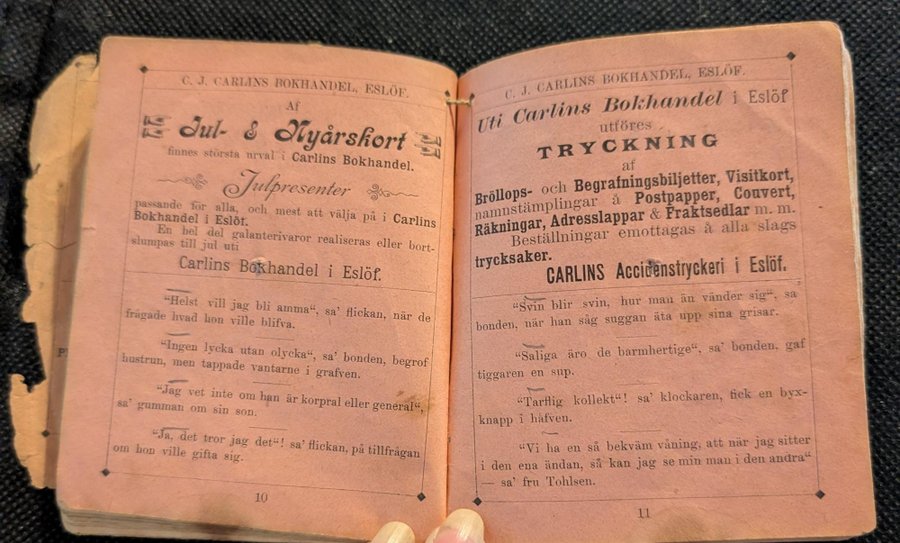 C. J. CARLINS BOKHANDEL, ESLÖF.
Af
Jul- & Nyårskort
finnes största urval i Carlins Bokhandel.
Julpresenter
passande för alla, och mest att välja på i Carlins
Bokhandel i Eslöf.
En hel del galanterivaror realiseras eller bort-
slumpas till jul uti
Carlins Bokhandel i Eslöf.
“Helst vill jag bli amma“, sa’ flickan, när de
frågade hvad hon ville blifva.
“Ingen lycka utan olycka“, sa’ bonden, begrof
hustrun, men tappade vantarne i grafven.
“Jag vet inte om han är korpral eller general“,
sa’ gumman om sin son.
“Ja, det tror jag det“! sa’ flickan, på tillfrågan
om hon ville gifta sig.
10
C. J. CARLINS BOKHANDEL, ESLÖF.
Uti Carlins Bokhandel i Eslöf
utföres
TRYCKNING
af
Bröllops- och Begrafningsbiljetter, Visitkort,
namnstämplingar å Postpapper, Couvert,
Räkningar, Adresslappar & Fraktsedlar m. m.
Beställningar emottagas å alla slags
trycksaker.
CARLINS Accidenstryckeri i Eslöf.
“Svin blir svin, hur man än vänder sig“, sa
bonden, när han såg suggan äta upp sina grisar.
“Saliga äro de barmhertige“, sa’ bonden, gaf
tiggaren en sup.
“Tarflig kollekt“! sa’ klockaren, fick en byx-
knapp i håfven.
“Vi ha en så bekväm våning, att när jag sitter
i den ena ändan, så kan jag se min man i den andra“
— sa’ fru Tohlsen.
11